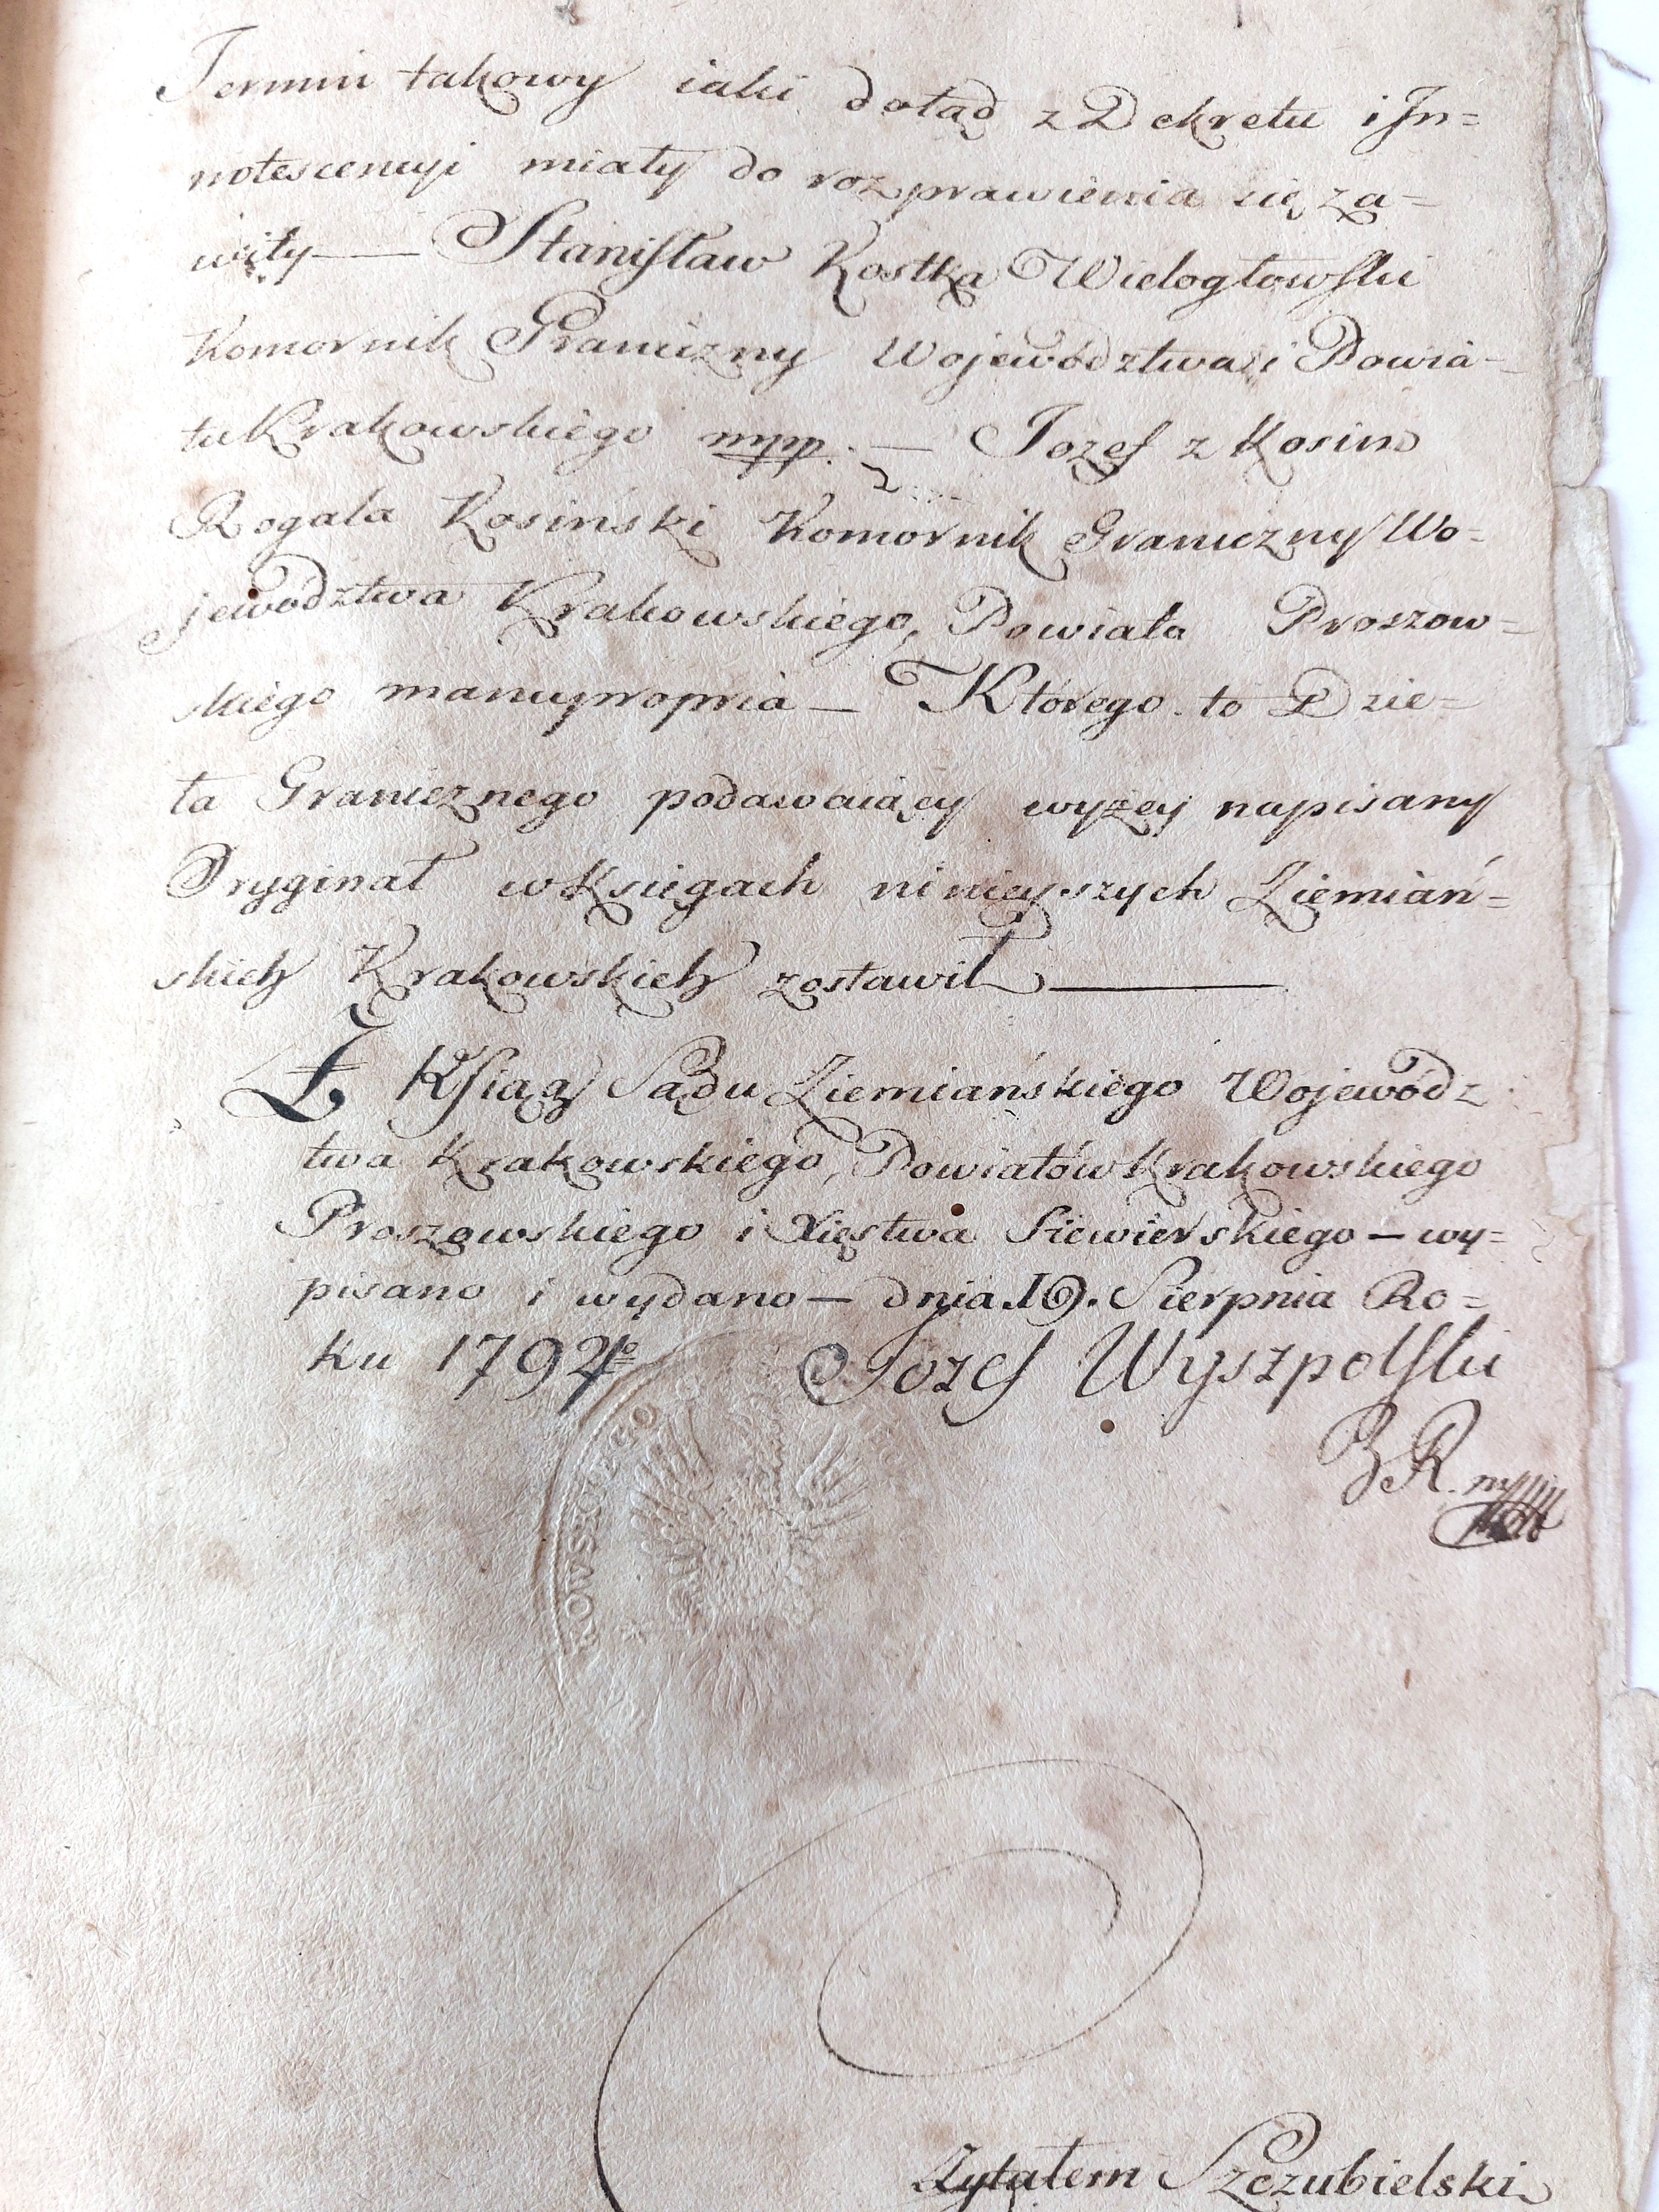 Termin takowy iaki dotąd z Dekretu i In=
notescencyi miały do rozprawienia się za=
wity — Stanisław Kostka Wielogłowski
Komornik Graniczny Województwa i Powia-
tu Krakowskiego mpp. — Jozef z Kosin
Rogala Kosiński Komornik Graniczny Wo=
jewództwa Krakowskiego, Powiatu Proszow=
skiego manupropria — Którego to Dzie=
ła Granicznego podawaiący wyżey napisany
Oryginał w Księgach ninieyszych Ziemiań=
skich Krakowskich zostawił —
Z Ksiąg Sądu Ziemiańskiego Wojewódz
twa Krakowskiego, Powiatów Krakowskiego
Proszowskiego i Xięstwa Siewierskiego — wy=
pisano i wydano — dnia 19. Sierpnia Ro=
ku 1792go Jozef Wyszpolski
R. mp
KOWSZOWEGO
Czytałem Szczubielski